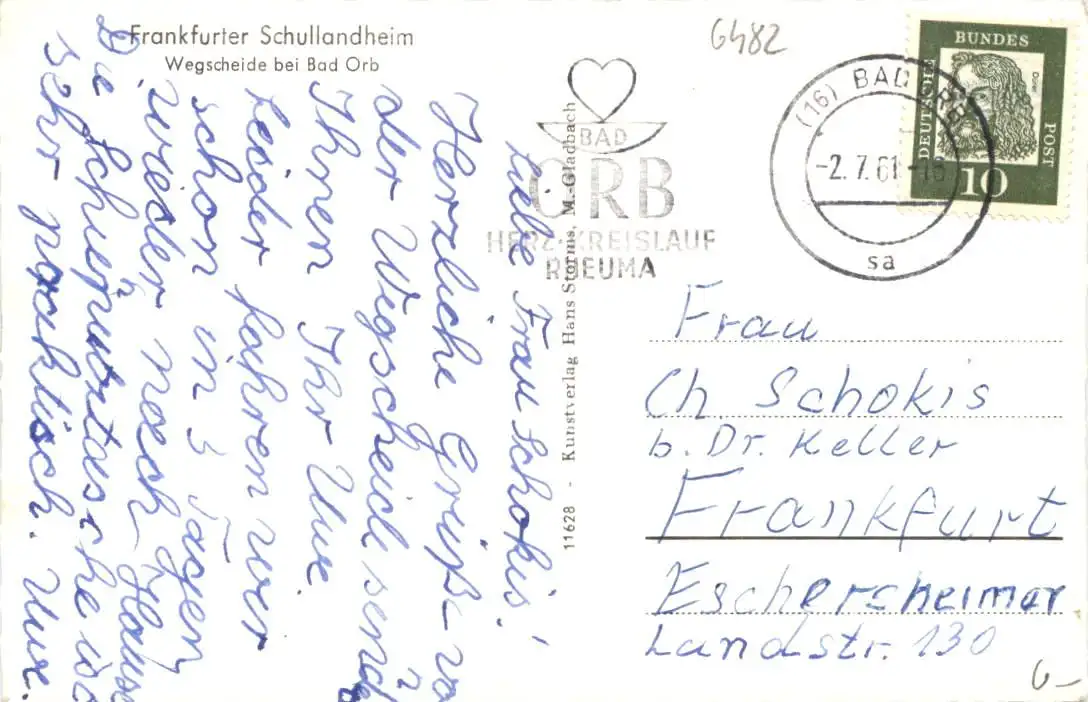 Frankfurter Schullandheim
Wegscheide bei Bad Orb
6482
BAD
ORB
HERZ-KREISLAUF
RHEUMA
(16) BAD ORB
-2.7.61-18
sa
DEUTSCHE
BUNDES
POST
Dürer
10
11628 - Kunstverlag Hans Storms, M.-Gladbach
Liebe Frau Schokis!
Herzliche Grüß- v
der Wegscheide send
Ihnen Ihr Uwe.
Leider fahren wir
schon in 3 Tagen
wieder nach Hause
Die Schuhputztasche wa
sehr praktisch. Uwe.
Frau
Ch. Schokis
b. Dr. Keller
Frankfurt
Eschersheimer
Landstr. 130
6-